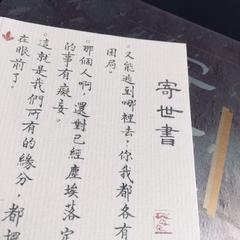 寄世書
。又能逃到哪裡去，你我都各有
困局。
。那個人啊，還對已經塵埃落定
的事有癡妄。
。這就是我們所有的緣分，都埋
在眼前了。